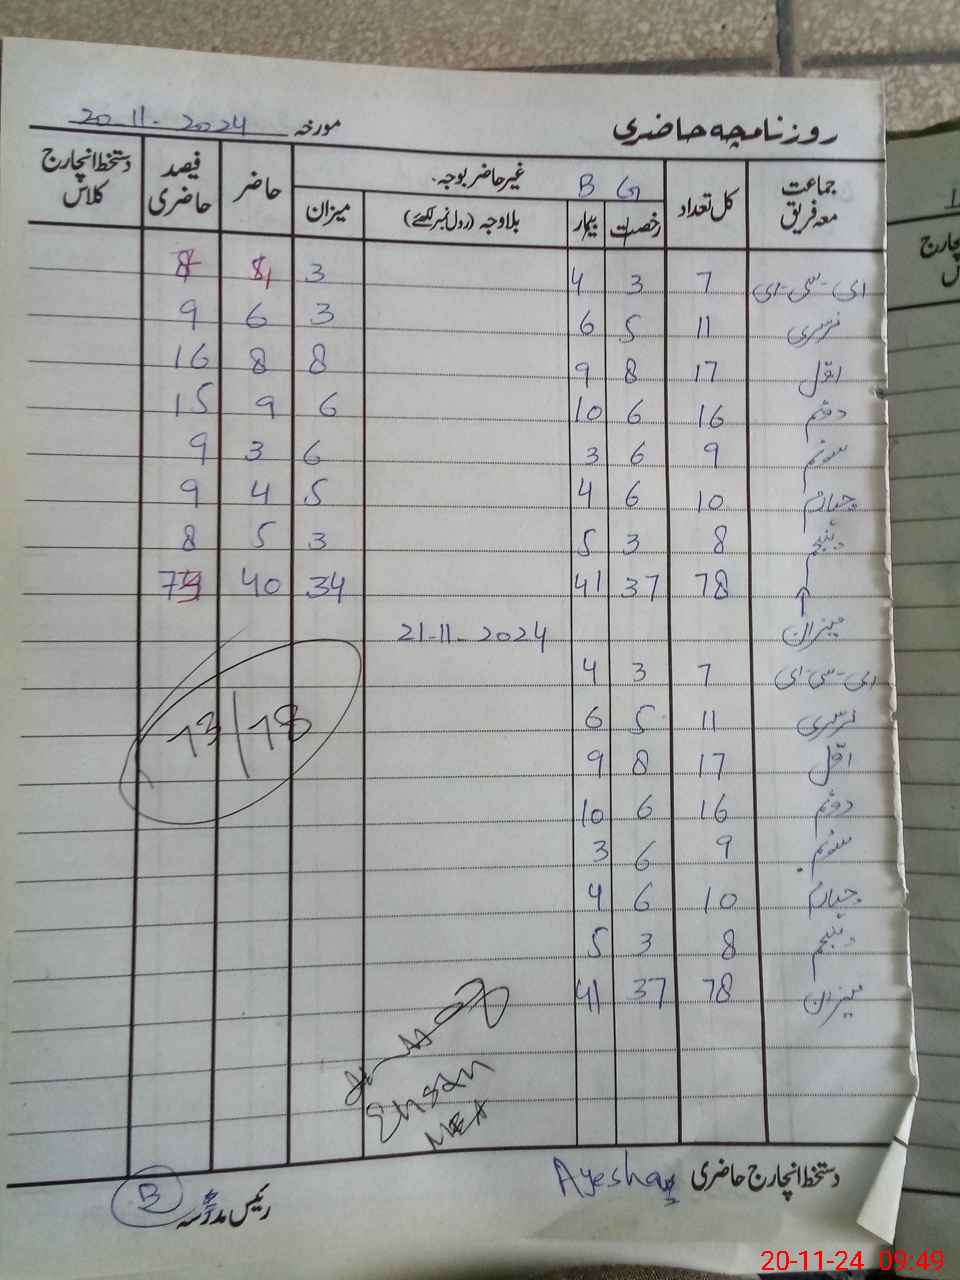 روزنامچہ حاضری مورخہ 20-11-2024
جماعت معہ فریق کل تعداد B G غیر حاضر بوجہ حاضر فیصد حاضری دستخط انچارج کلاس
رخصت بیمار بلاوجہ (رول نمبر لکھئے) میزان
ای-سی-ای 7 3 4 3
نرسری 11 5 6 3 6 9
اوّل 17 8 9 8 8 16
دوئم 16 6 10 6 9 15
سوئم 9 6 3 6 3 9
چہارم 10 6 4 5 4 9
پنجم 8 3 5 3 5 8
78 37 41 34 40
میزان 21-11-2024
ای-سی-ای 7 3 4
نرسری 11 5 6
73/78
اوّل 17 8 9
دوئم 16 6 10
سوئم 9 6 3
چہارم 10 6 4
پنجم 8 3 5
میزان 78 37 41
Ehsan
MEA
دستخط انچارج حاضری Ayesha
رئیس مدرسہ B
20-11-24 09:49